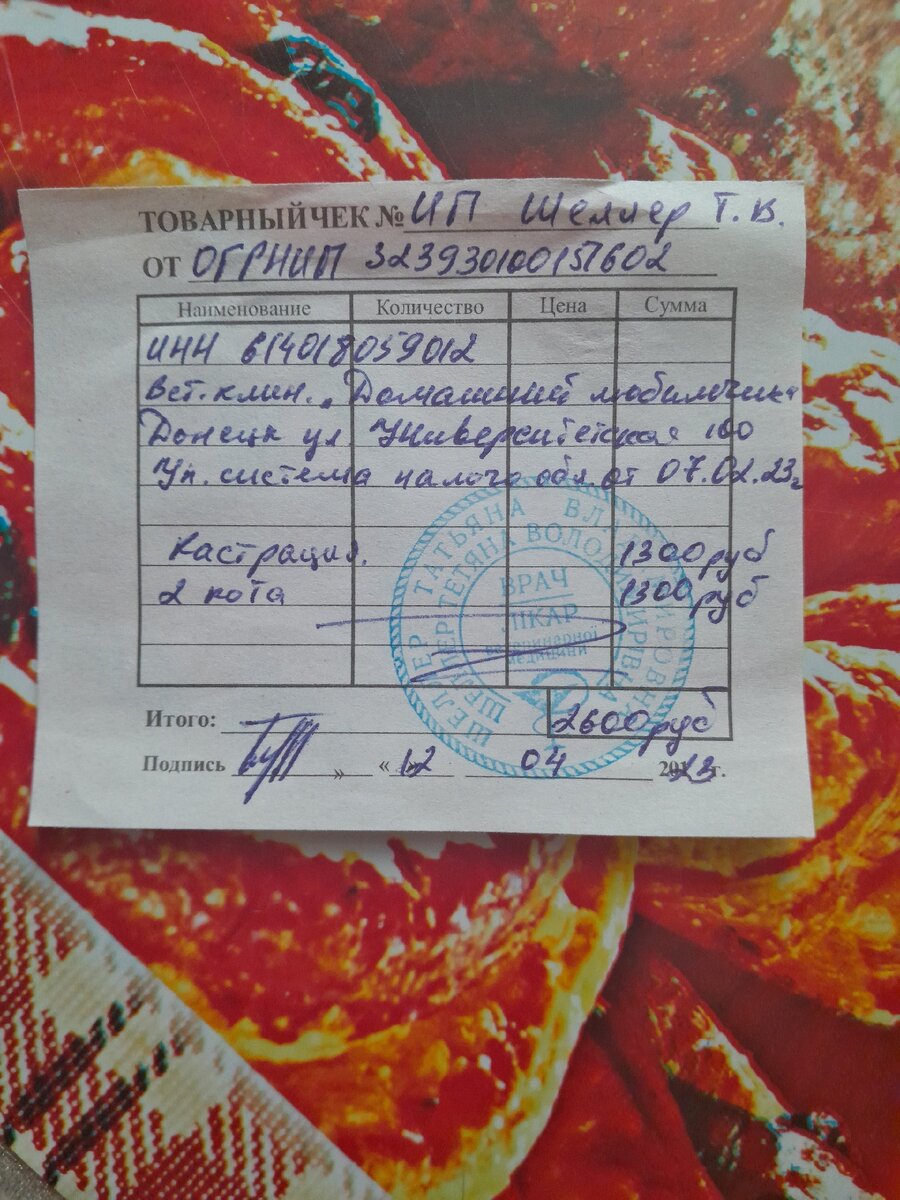 ТОВАРНЫЙ ЧЕК № ИП Шеллер Т.В.
ОТ ОГРНИП 323930100157602
Наименование Количество Цена Сумма
ИНН 614018059012
Вет. клин. „Домашний любимчик
Донецк ул Университетская 100
Уп. система налогообл. от 07.02.23г
Кастрация. 1300 руб
2 кота 1300 руб
ШЕЛЛЕР ТАТЬЯНА ВЛАДИМИРОВНА
ШЕЛЛЕР ТЕТЯНА ВОЛОДИМИРІВНА
ВРАЧ
ЛІКАР
ветеринарної
медицини
Итого: 2600 руб
Подпись » « 12 04 23 г.